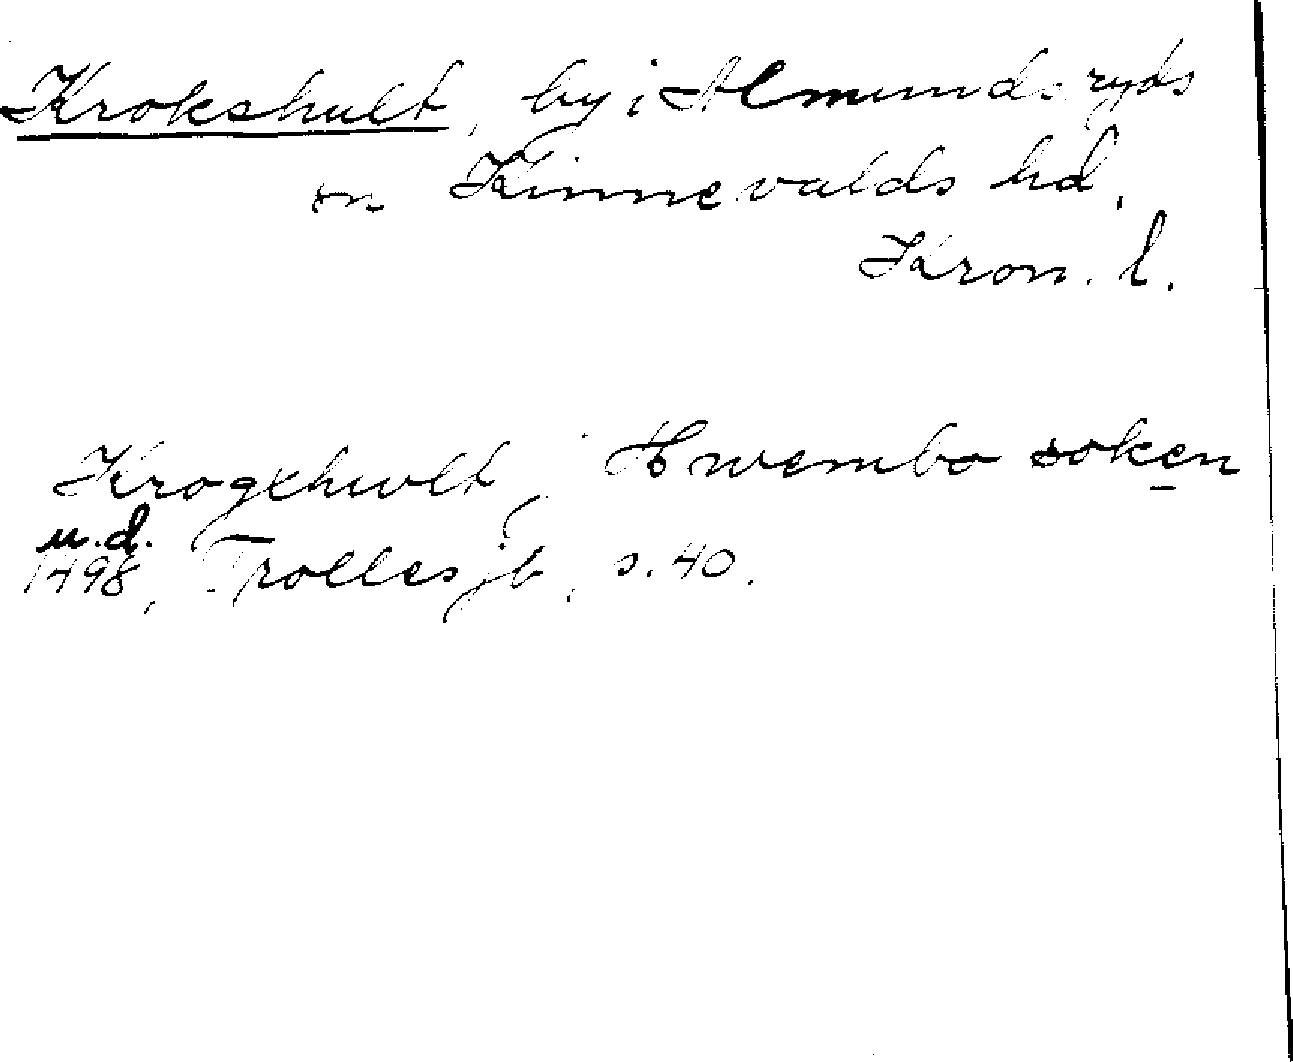 Krokshult, by i Almundsryds
sn Kinnevalds hd,
Kron. l.
Krogxhwlt, Hwembo soken
u.d.
1498, Trolles jb, s. 40.